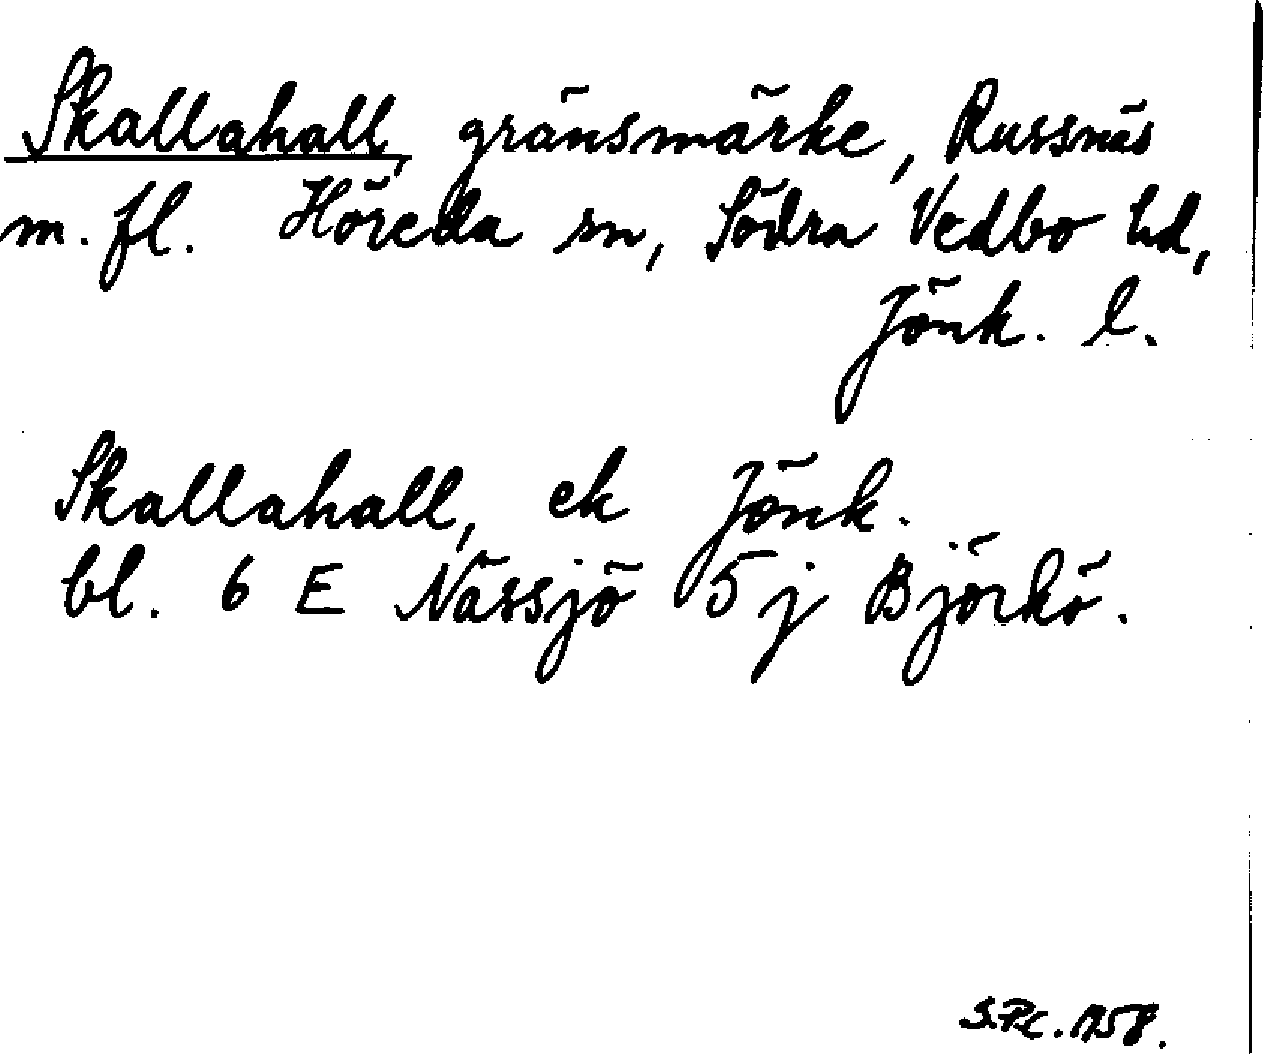 Skallahall, gränsmärke, Russnäs
m. fl. Höreda sn, Södra Vedbo hd,
Jönk. l.
Skallahall, ek Jönk.
bl. 6 E Nässjö 5j Björkö.
1958.